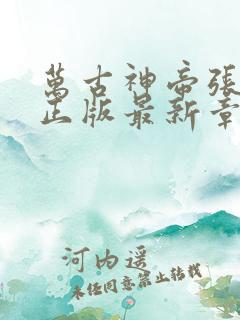 萬古神帝張
正版最新章
河内遥
未经同意禁止转载